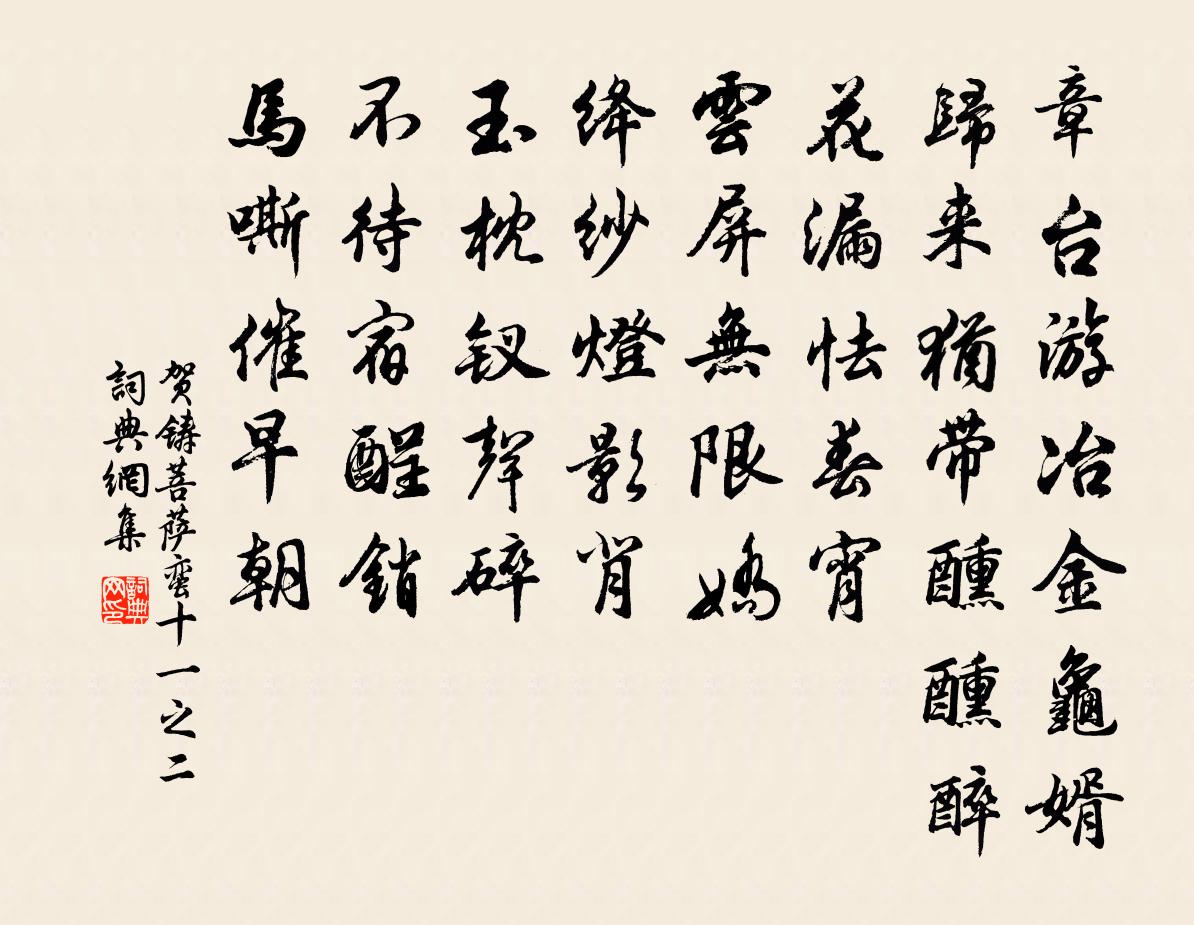 章台游冶金龜婿
歸来猶带醺醺醉
花漏怯春宵
雲屏無限嬌
绛纱燈影背
玉枕钗聲碎
不待宿酲銷
馬嘶催早朝
贺鑄菩萨蛮十一之二
詞典網集
詞典
网印